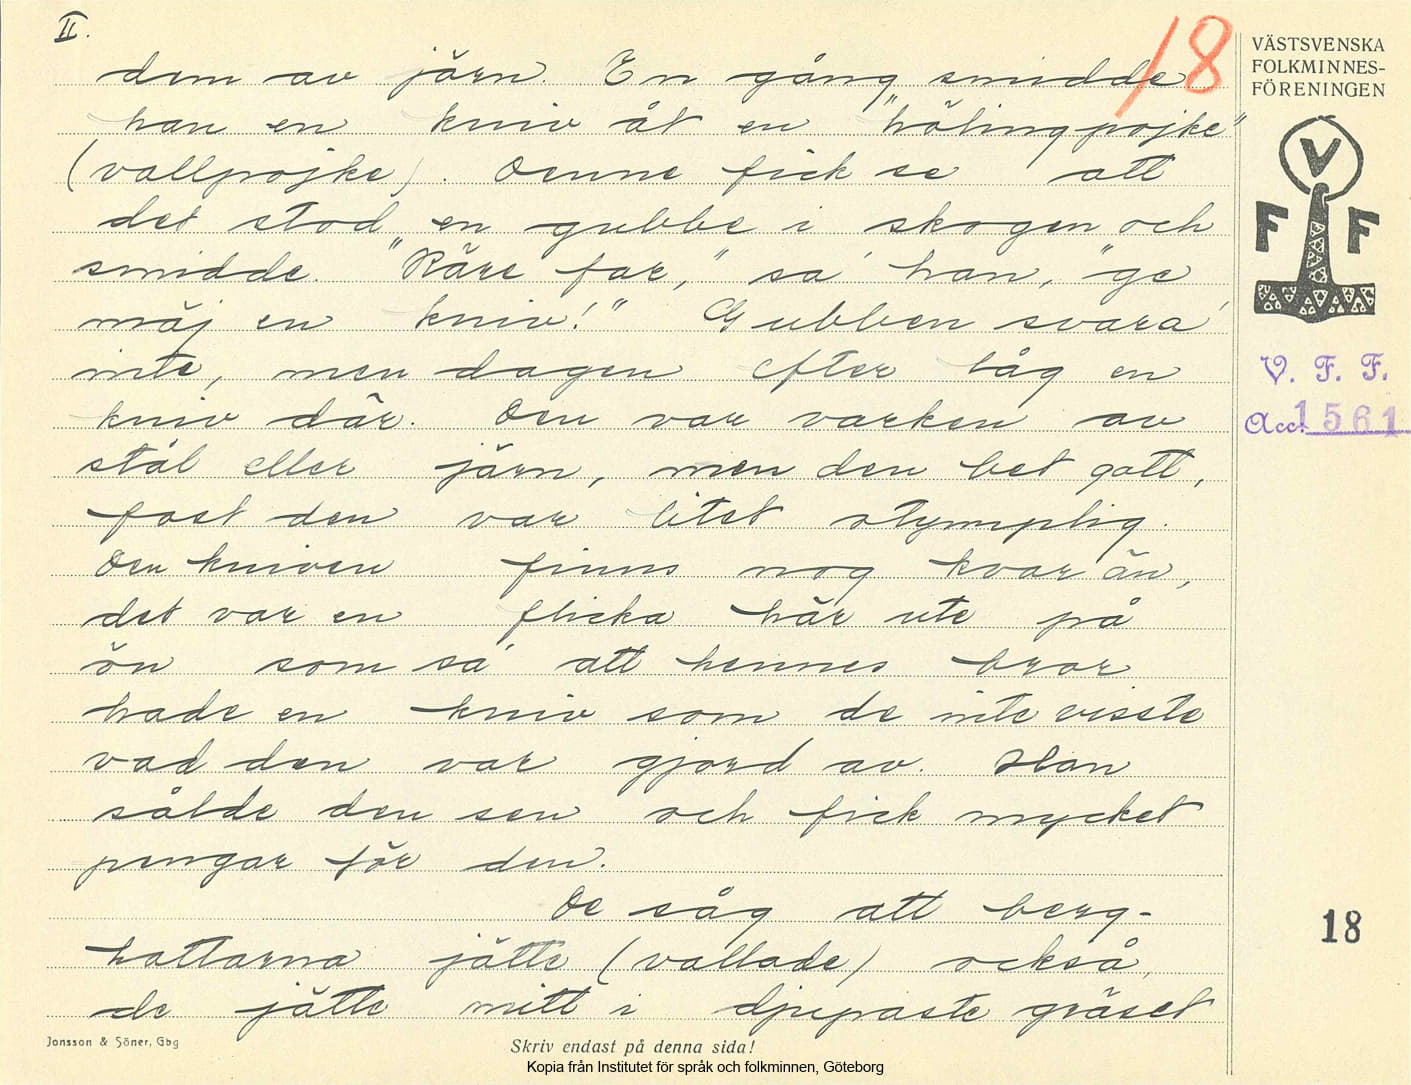 II.
18
VÄSTSVENSKA
FOLKMINNES-
FÖRENINGEN
V
F F
V. F. F.
Acc. 1561
dem av järn. En gång smidde
han en kniv åt en "hölingpojke"
(vallpojke). Denne fick se att
det stod en gubbe i skogen och
smidde. "Käre far," sa' han, "ge
mäj en kniv!" Gubben svara'
inte, men dagen efter låg en
kniv där. Den var varken av
stål eller järn, men den bet gott,
fast den var litet stymplig.
Den kniven finns nog kvar än,
det var en flicka här ute på
ön som sa' att hennes bror
hade en kniv som de inte visste
vad den var gjord av. Han
sålde den sen och fick mycket
pengar för den.
De såg att berg-
hattarna jätte (vallade) också,
de jätte mitt i djupaste gräset
18
Jonsson & Söner, Gbg
Skriv endast på denna sida!
Kopia från Institutet för språk och folkminnen, Göteborg